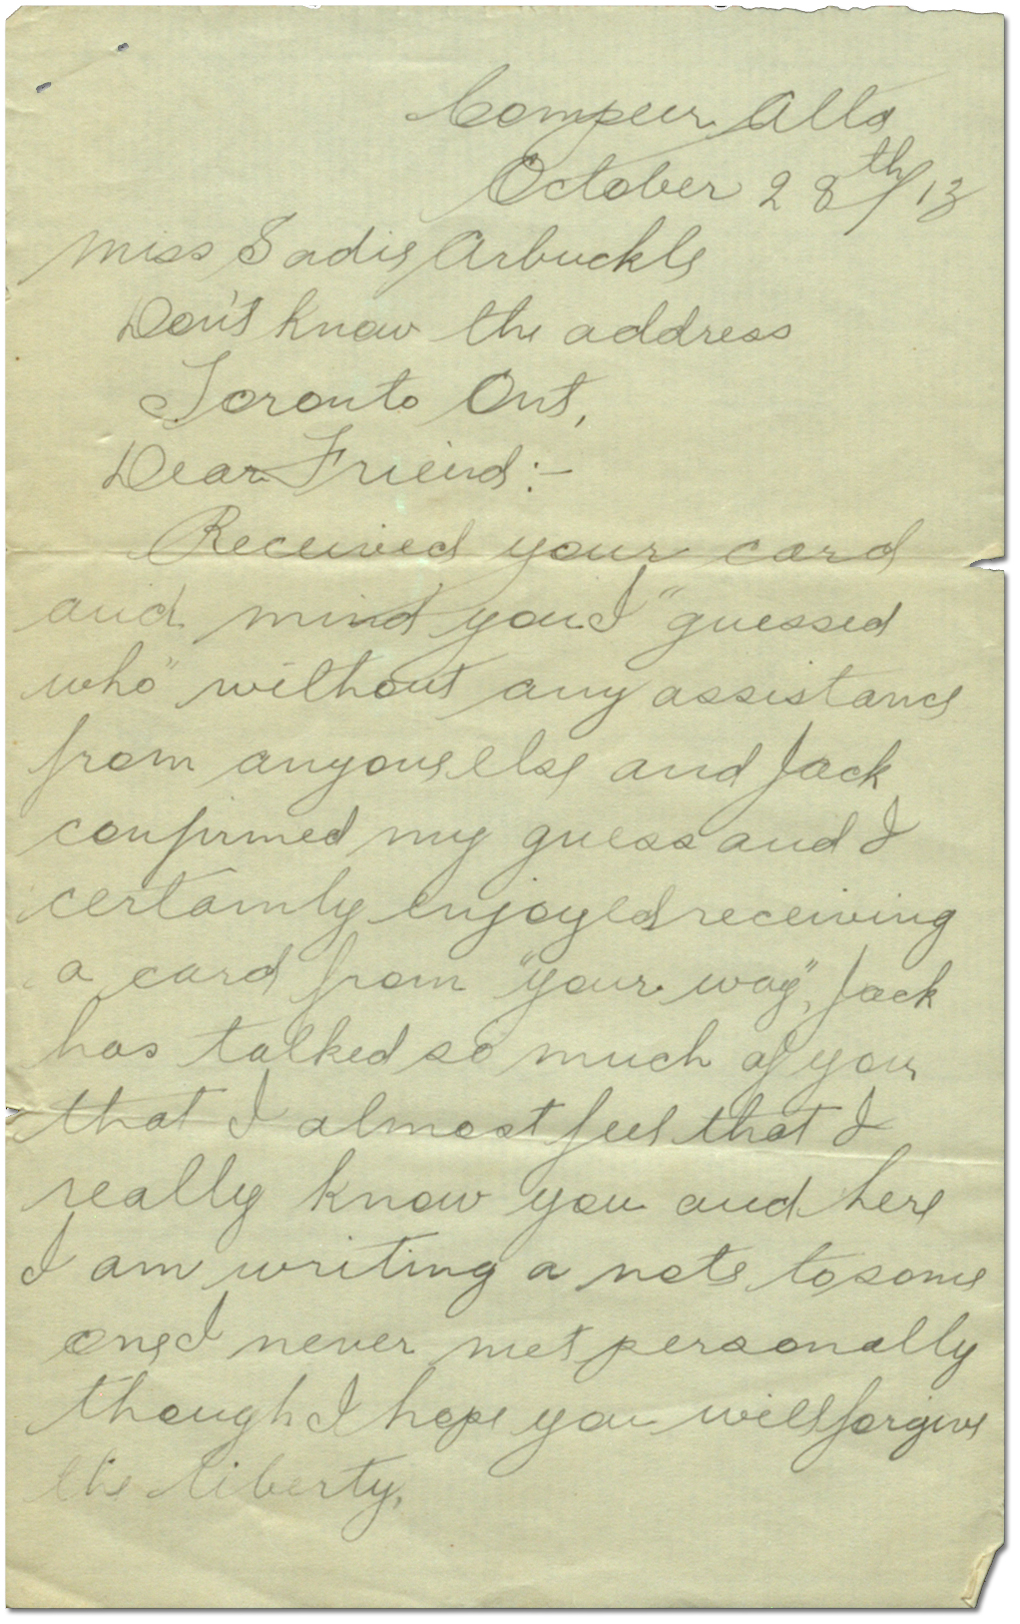 Compeer Alta
October 28th/13
Miss Sadie Arbuckle
Don't know the address
Toronto Ont,
Dear Friend:-
Received your card
and mind you I "guessed
who" without any assistance
from anyone else and Jack
confirmed my guess and I
certainly enjoyed receiving
a card from "your way", Jack
has talked so much of you
that I almost feel that I
really know you and here
I am writing a note to some
one I never met personally
though I hope you will forgive
the liberty,